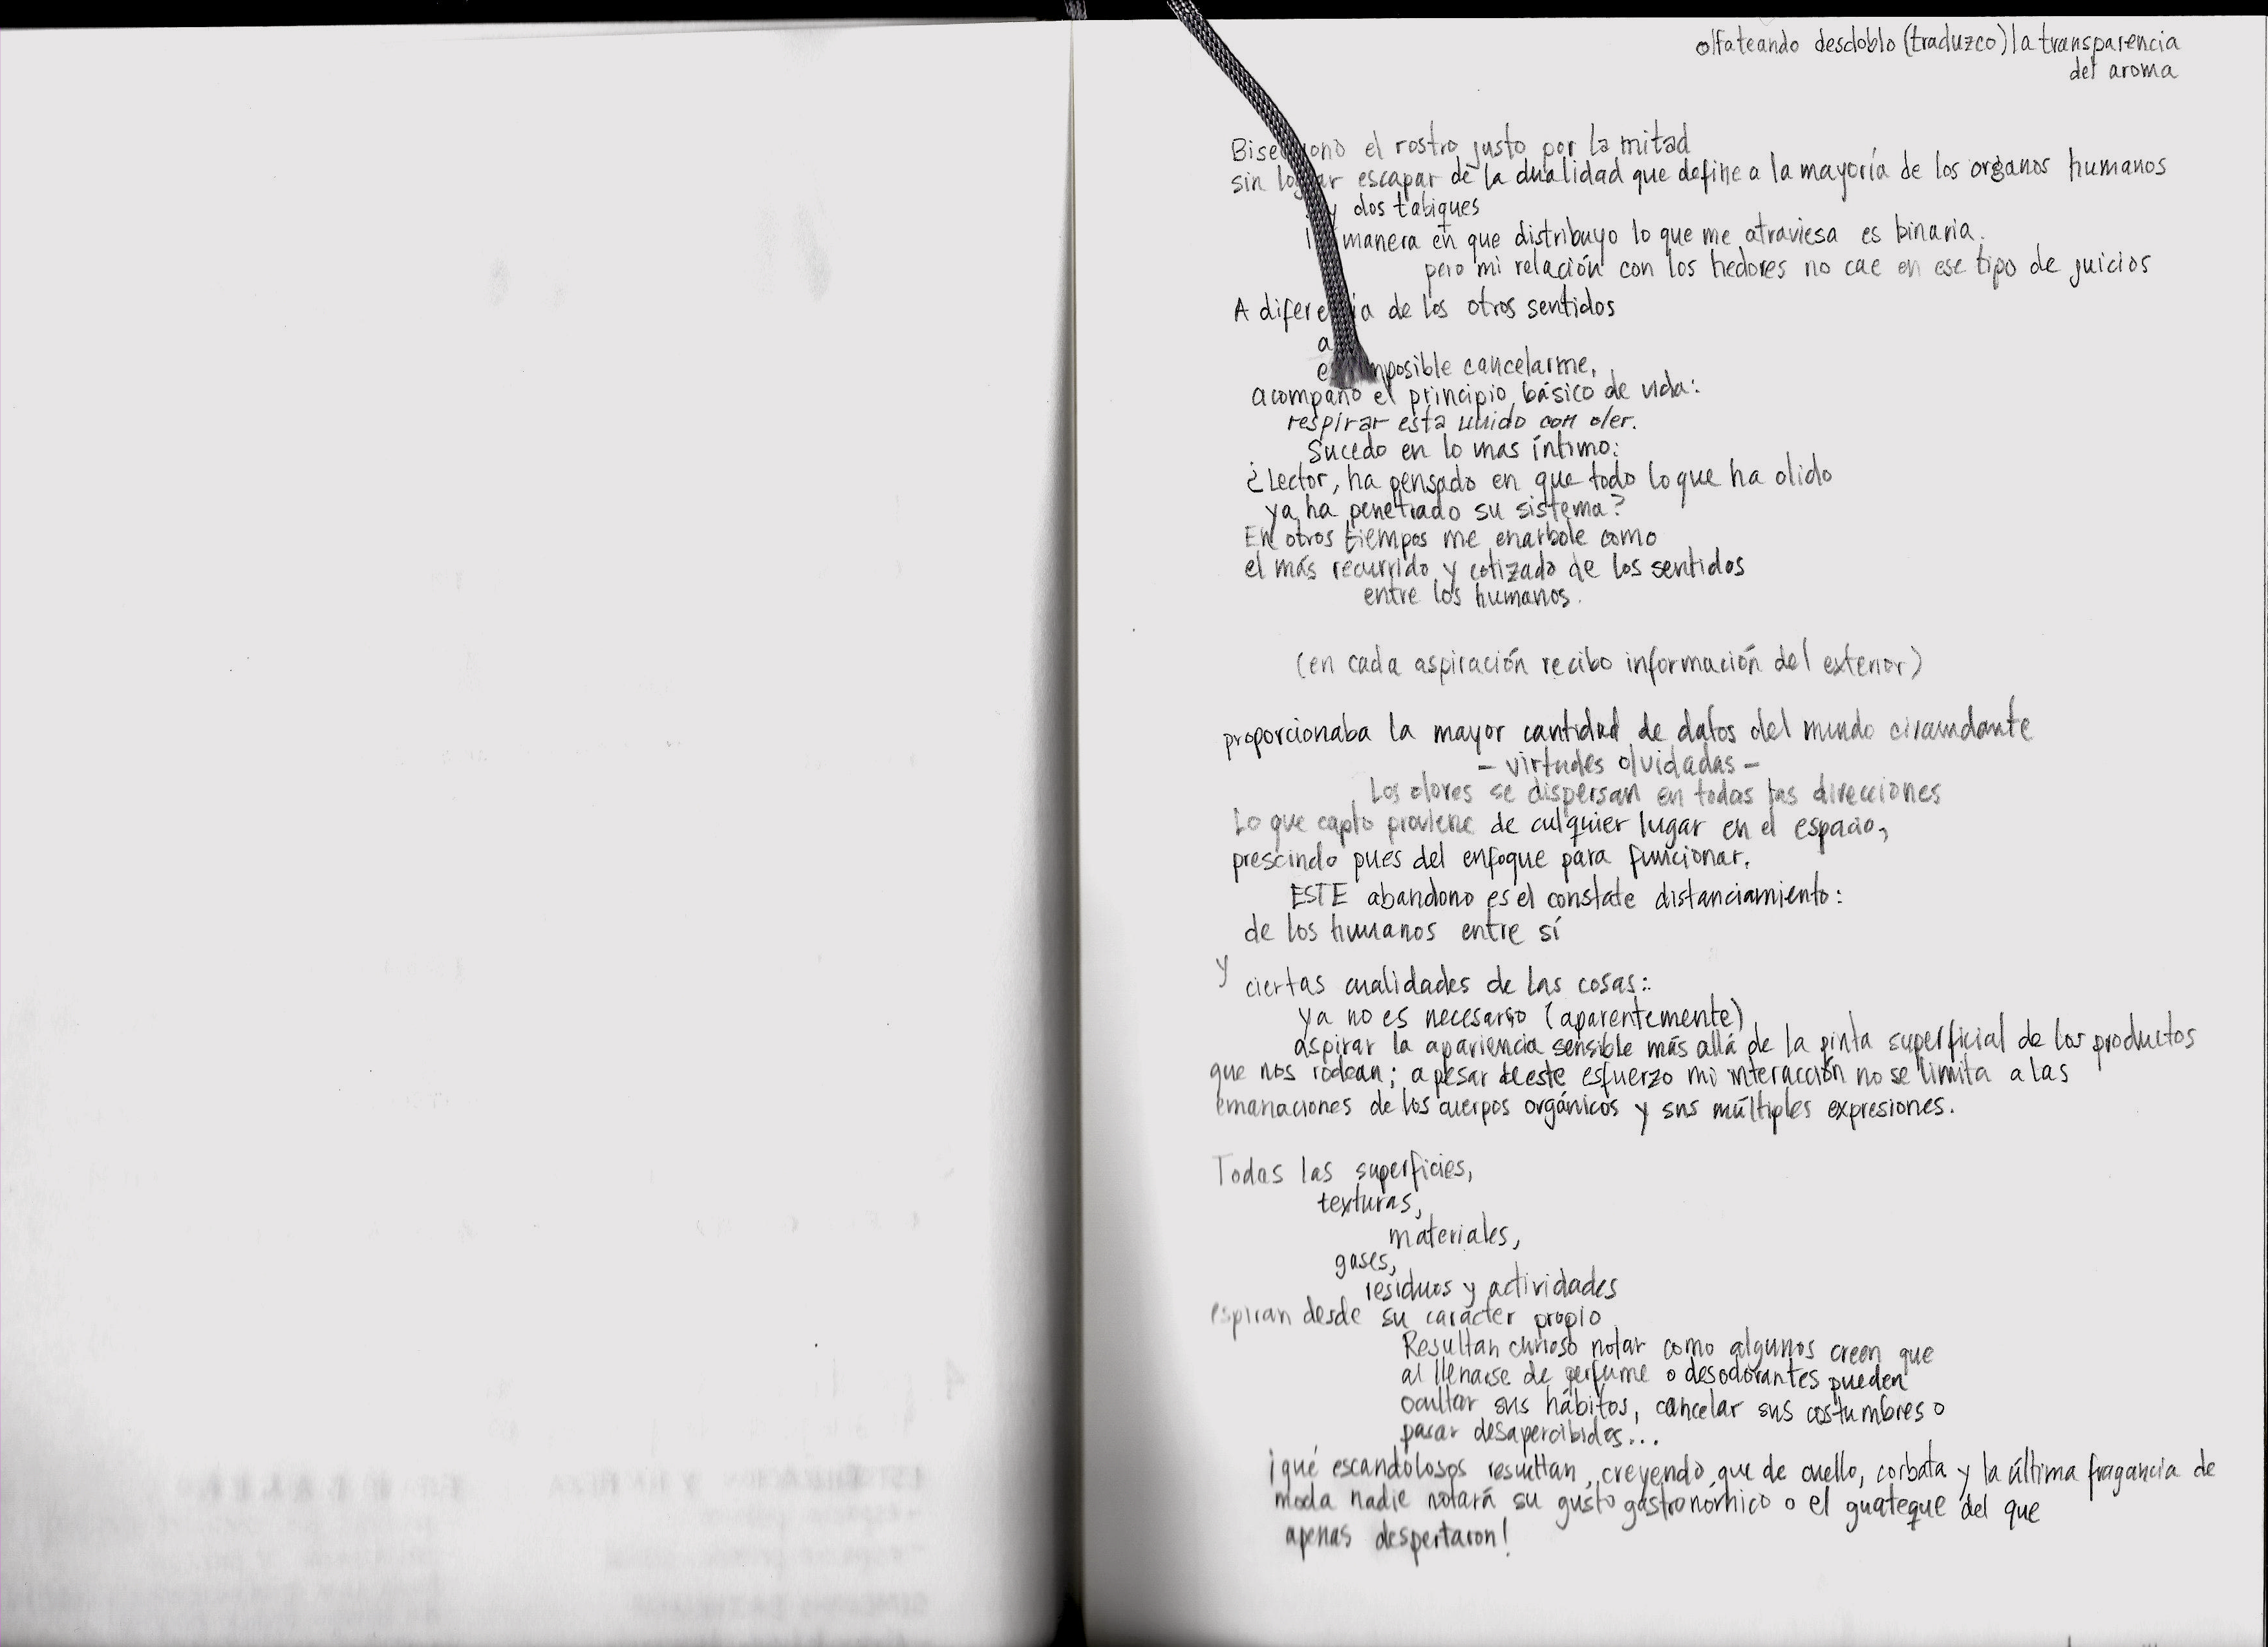 olfateando desdoblo (traduzco) la transparencia
del aroma
el rostro justo por la mitad
sin escapar de la dualidad que define a la mayoría de los organos humanos
y dos tabiques
manera en que distribuyo lo que me atraviesa es binaria.
pero mi relación con los hedores no cae en ese tipo de juicios
A de los otros sentidos
cancelarme,
acompaño el principio básico de vida:
respirar esta unido con oler.
Sucedo en lo mas íntimo:
¿Lector, ha pensado en que todo lo que ha olido
ya ha penetrado su sistema?
En otros tiempos me enarbole como
el más recurrido y cotizado de los sentidos
entre los humanos.
(en cada aspiración recibo información del exterior)
proporcionaba la mayor cantidad de datos del mundo circundante
- virtudes olvidadas -
Los olores se dispersan en todas las direcciones
Lo que capto proviene de culquier lugar en el espacio,
prescindo pues del enfoque para funcionar.
ESTE abandono es el constate distanciamiento:
de los humanos entre sí
y
ciertas cualidades de las cosas:
ya no es necesario (aparentemente)
aspirar la apariencia sensible más allá de la pinta superficial de los productos
que nos rodean; a pesar de este esfuerzo mi interacción no se limita a las
emanaciones de los cuerpos orgánicos y sus múltiples expresiones.
Todas las superficies,
texturas,
materiales,
gases,
residuos y actividades
espiran desde su carácter propio
Resultan curioso notar como algunos creen que
al llenarse de perfume o desodorantes pueden
ocultar sus hábitos, cancelar sus costumbres o
pasar desapercibidos...
¡qué escandolosos resultan, creyendo que de cuello, corbata y la última fragancia de
moda nadie notará su gusto gastronómico o el guateque del que
apenas despertaron!